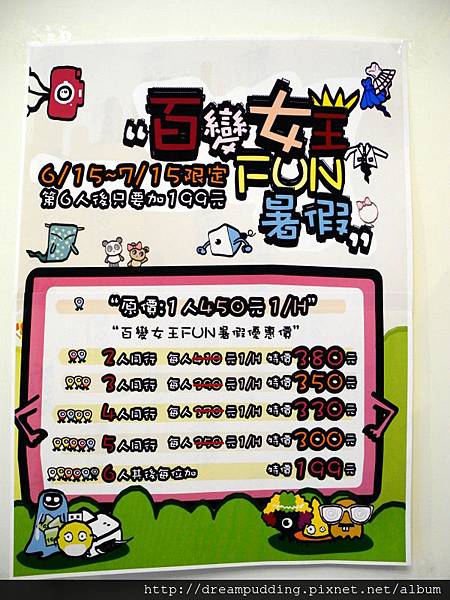 “百變女王
FUN
暑假”
6/15~7/15限定
第6人後只要加199元
“原價:1人450元1/H”
“百變女王FUN暑假優惠價”
2人同行 每人410元1/H 特價380元
3人同行 每人390元1/H 特價350元
4人同行 每人370元1/H 特價330元
5人同行 每人350元1/H 特價300元
6人其後每位加 特價199元
http://dreampudding.pixnet.net/album